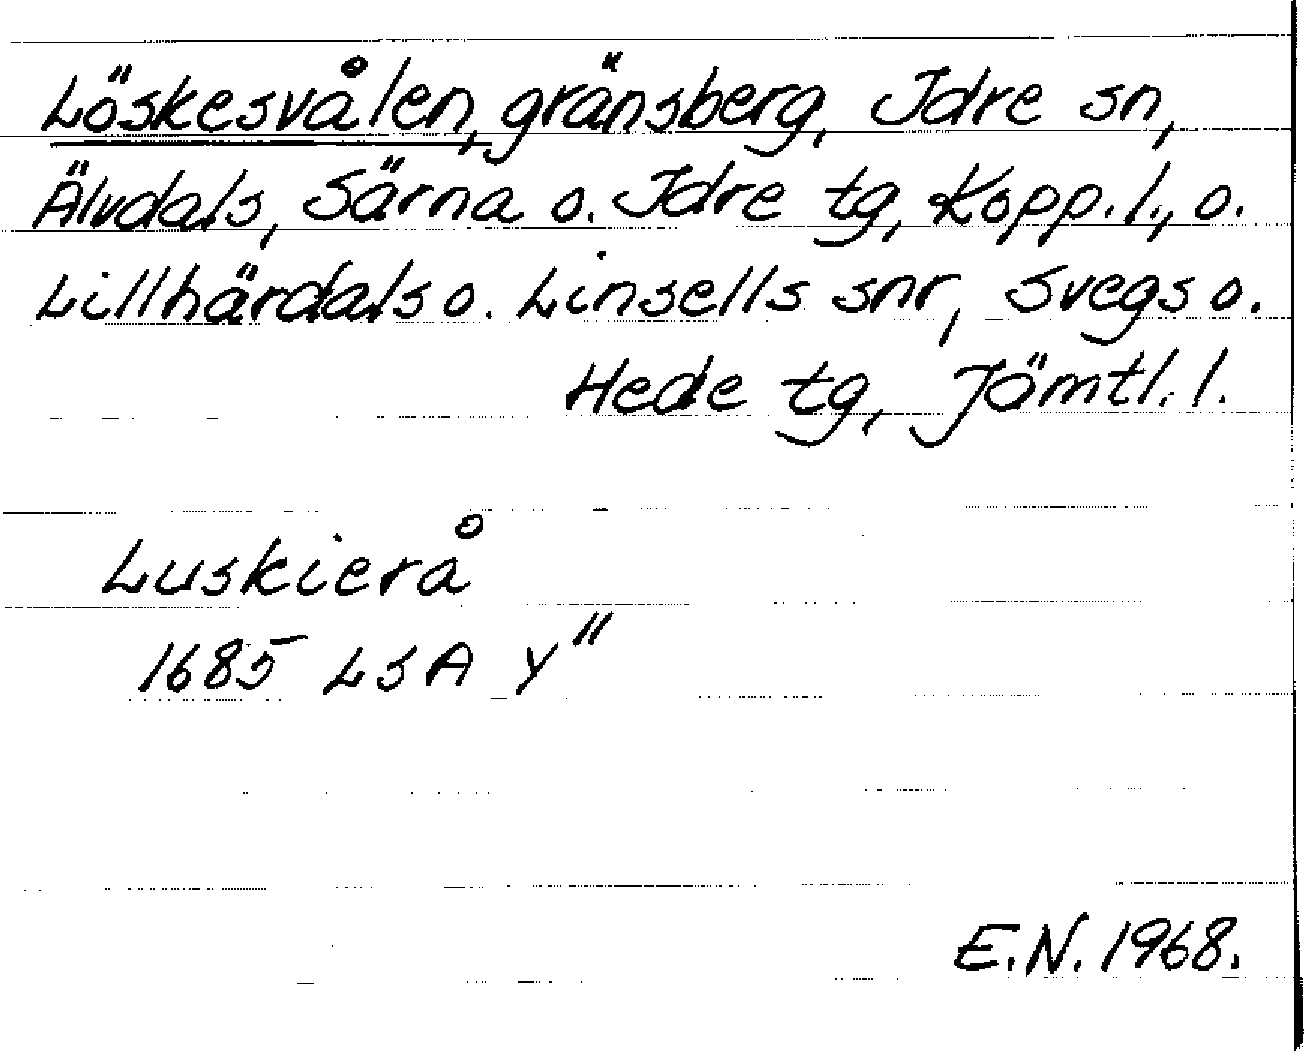 Löskesvålen, gränsberg, Idre sn,
Älvdals, Särna o. Idre tg, Kopp. l., o.
Lillhärdals o. Linsells snr, Svegs o.
Hede tg, Jämtl. l.
Luskierå
1685 LSA Y"
E.N. 1968.